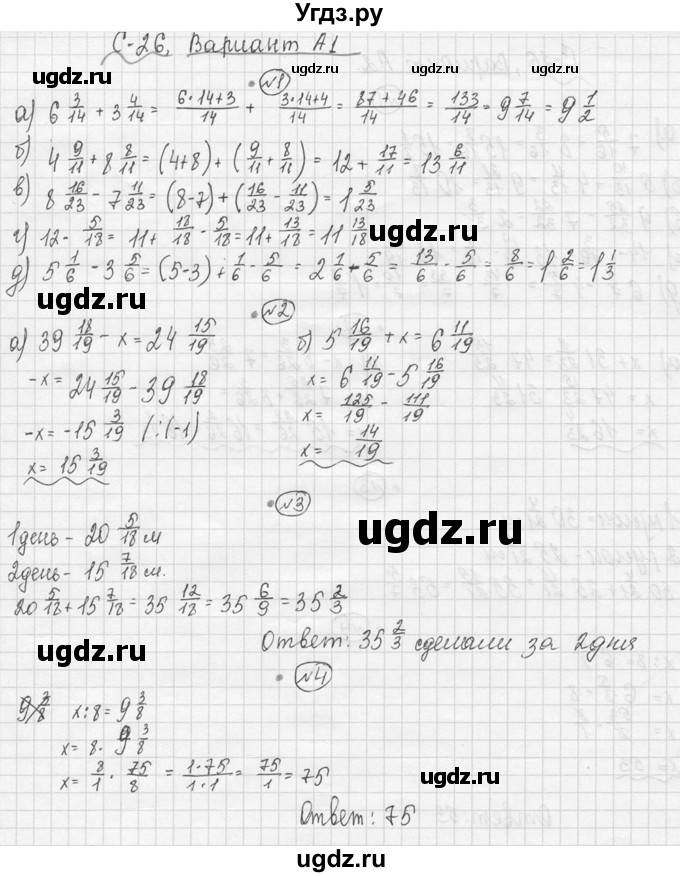 Угдз.ру
С-26, Вариант А1
№1
а) 6 3/14 + 3 4/14 = (6·14+3)/14 + (3·14+4)/14 = (87+46)/14 = 133/14 = 9 7/14 = 9 1/2
б) 4 9/11 + 8 8/11 = (4+8) + (9/11 + 8/11) = 12 + 17/11 = 13 6/11
в) 8 16/23 - 7 11/23 = (8-7) + (16/23 - 11/23) = 1 5/23
г) 12 - 5/18 = 11 + 18/18 - 5/18 = 11 + 13/18 = 11 13/18
д) 5 1/6 - 3 5/6 = (5-3) + 1/6 - 5/6 = 2 1/6 - 5/6 = 13/6 - 5/6 = 8/6 = 1 2/6 = 1 1/3
ugdz.ru ugdz.ru ugdz.ru
№2
а) 39 18/19 - x = 24 15/19
-x = 24 15/19 - 39 18/19
-x = -15 3/19 | : (-1)
x = 15 3/19
б) 5 16/19 + x = 6 11/19
x = 6 11/19 - 5 16/19
x = 125/19 - 111/19
x = 14/19
ugdz.ru ugdz.ru
№3
1 день - 20 5/18 м
2 день - 15 7/18 м.
20 5/18 + 15 7/18 = 35 12/18 = 35 6/9 = 35 2/3
Ответ: 35 2/3 сделали за 2 дня
ugdz.ru ugdz.ru
№4
x : 8 = 9 3/8
x = 8 · 9 3/8
x = 8/1 · 75/8 = (1·75)/(1·1) = 75/1 = 75
Ответ: 75
ugdz.ru ugdz.ru ugdz.ru
ugdz.ru